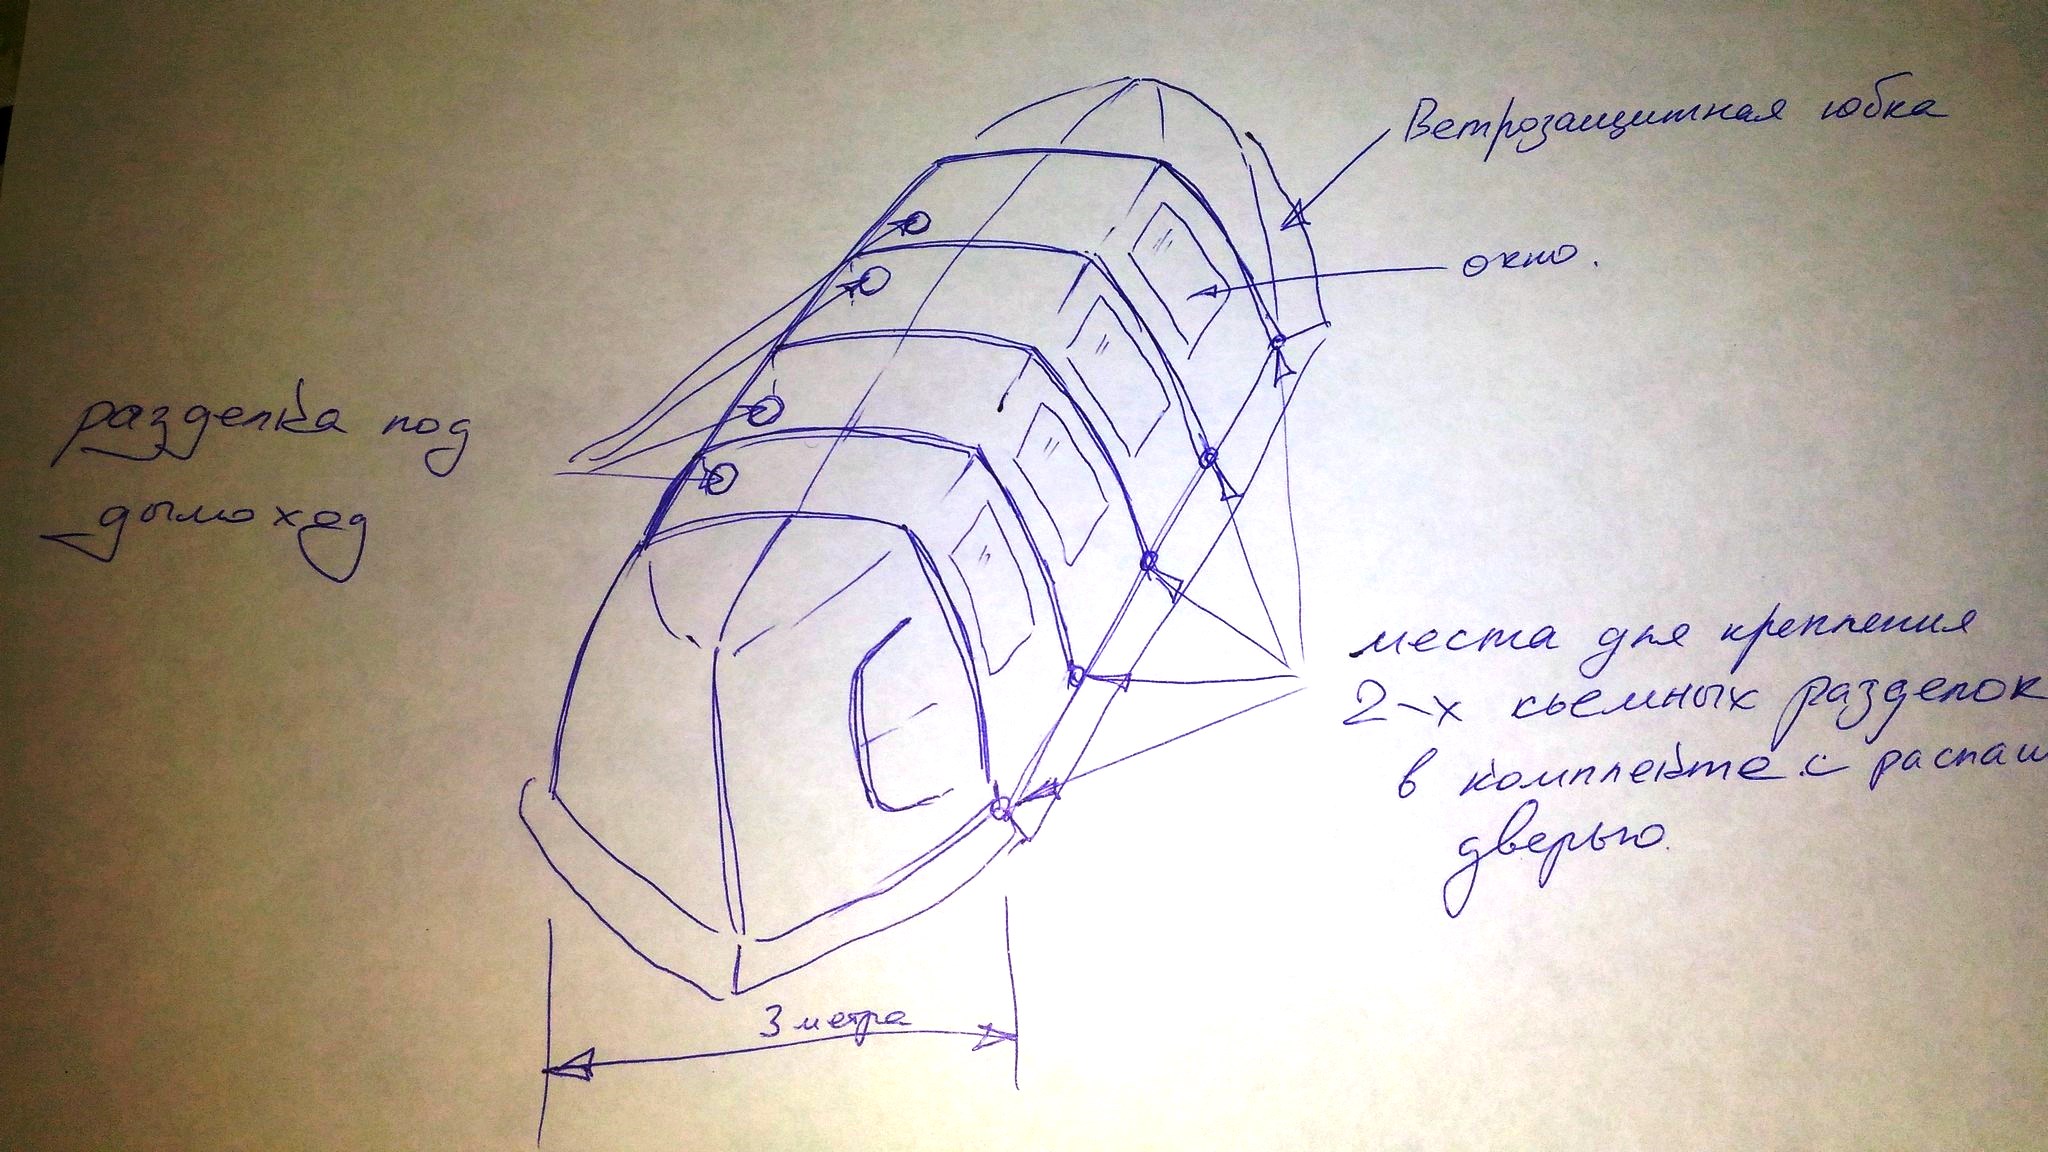 Ветрозащитная юбка
окно.
разделка под
дымоход
места для крепления
2-х съемных разделок
в комплекте с распаш
дверью.
3 метра